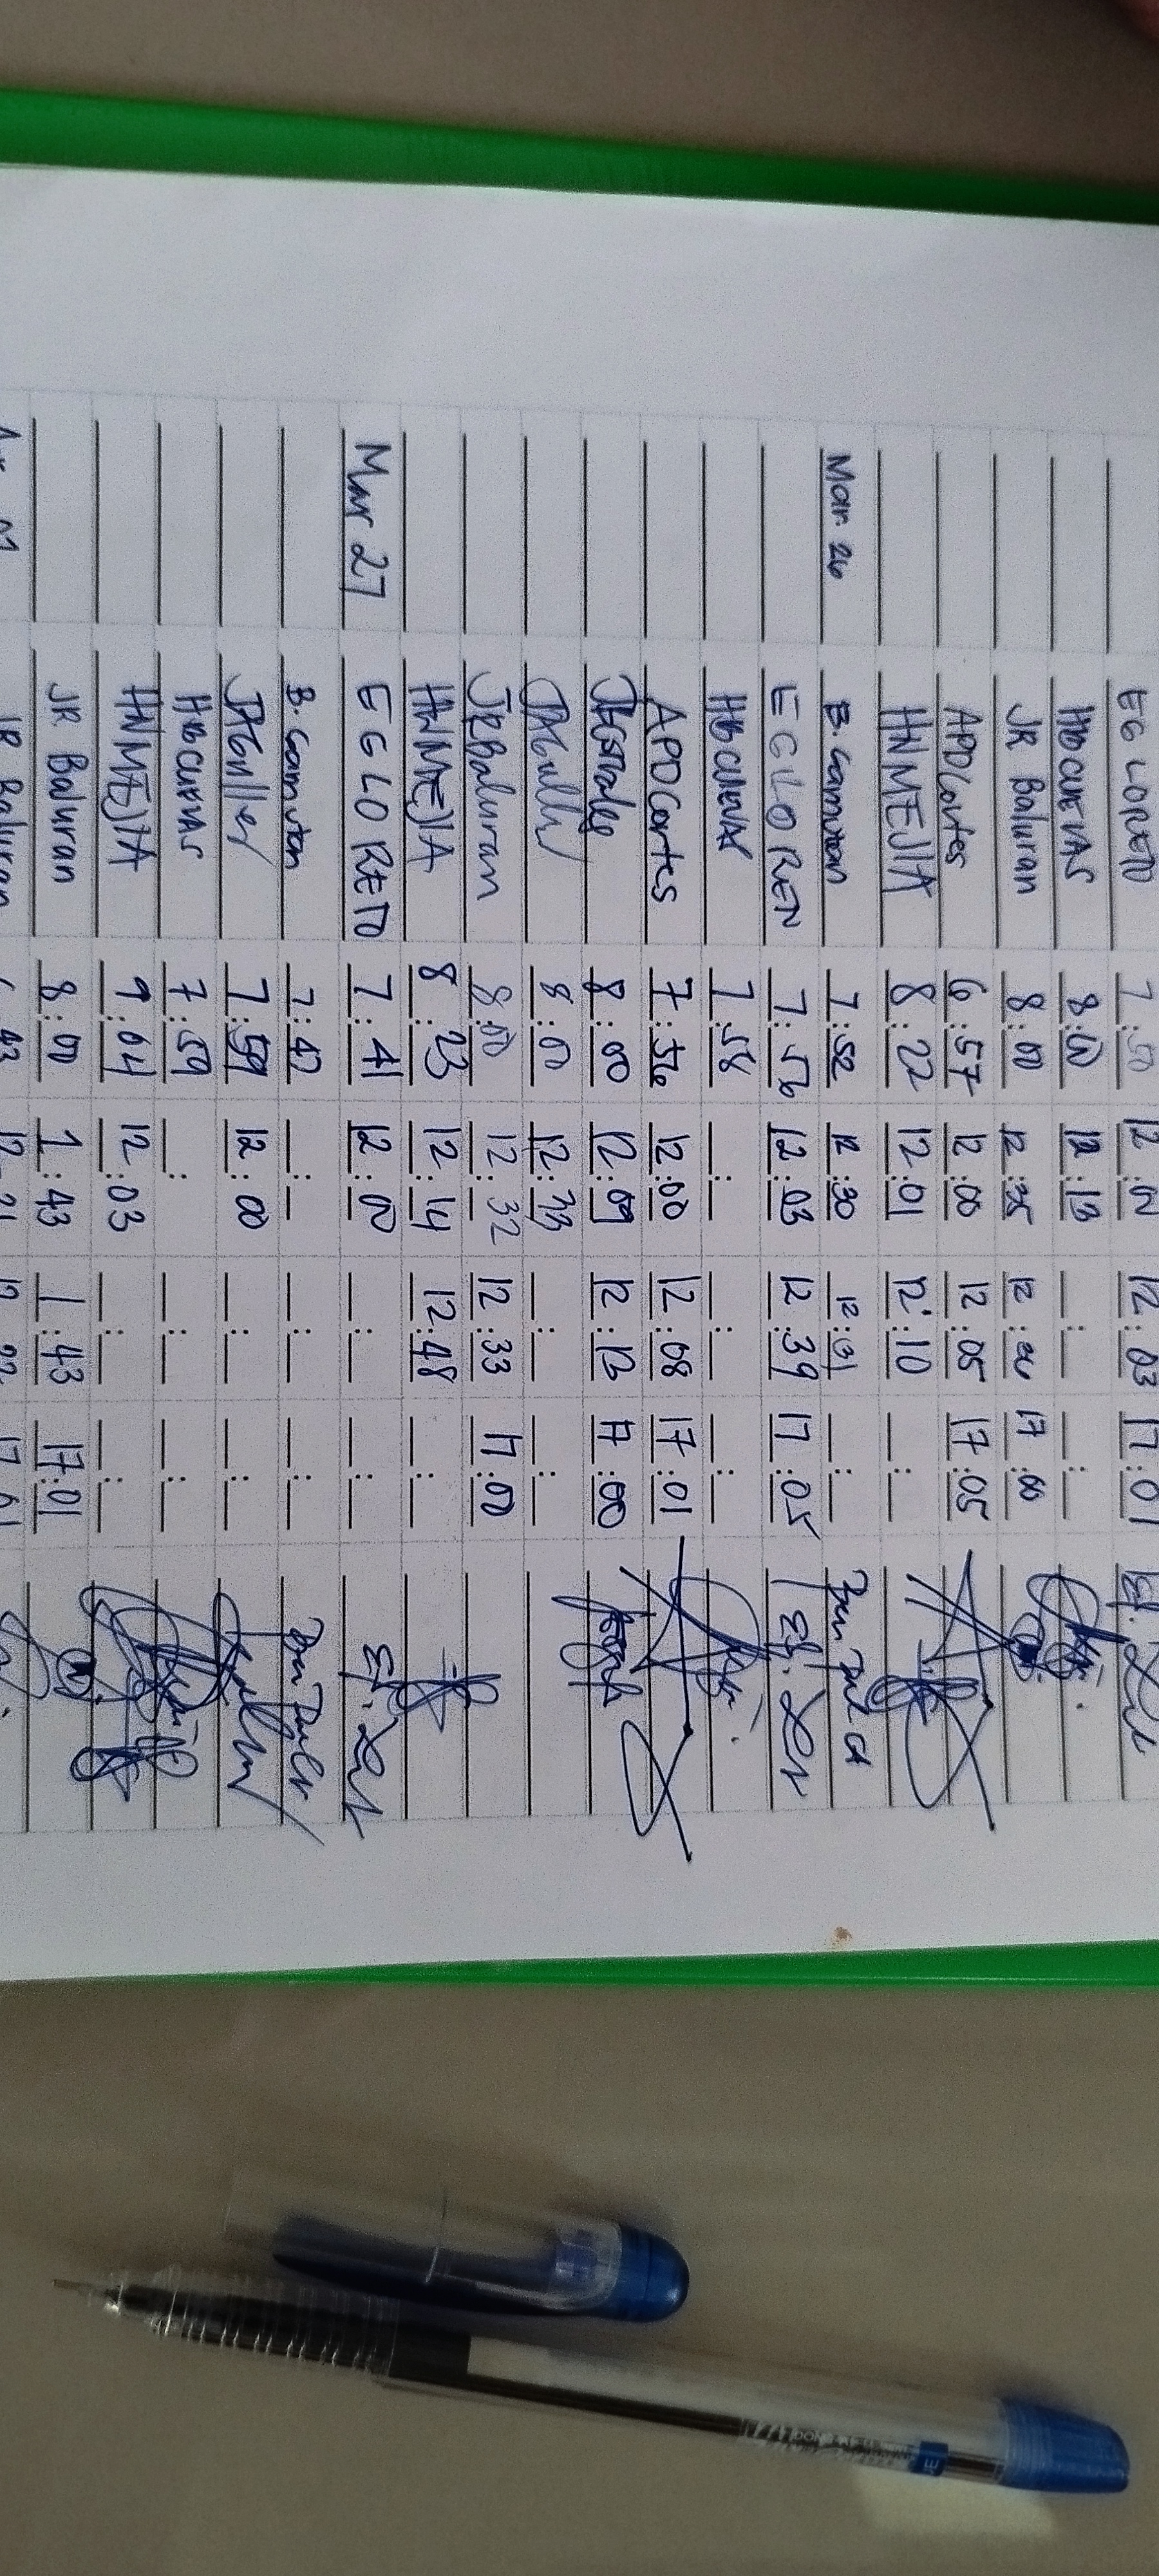 EG LORETO 7:50 12:00 12:03 17:01
HBCUEVAS 8:00 12:13
JR Baluran 8:00 12:35 12:36 17:00
APDCortes 6:57 12:00 12:05 17:05
HNMEJIA 8:22 12:01 12:10
Mar 26 B. Camuton 7:52 12:30 12:31
EG LORETO 7:56 12:03 12:39 17:05
HBCUEVAS 7:58
APDCortes 7:56 12:00 12:08 17:01
8:00 12:09 12:13 17:00
8:00 12:33
JRBaluran 8:00 12:32 12:33 17:00
HNMEJIA 8:23 12:14 12:48
Mar 27 EG LORETO 7:41 12:00
B. Camuton 7:42
7:59 12:00
HBCUEVAS 7:59
HNMEJIA 9:04 12:03
JR Baluran 8:00 1:43 1:43 17:01
JR Baluran